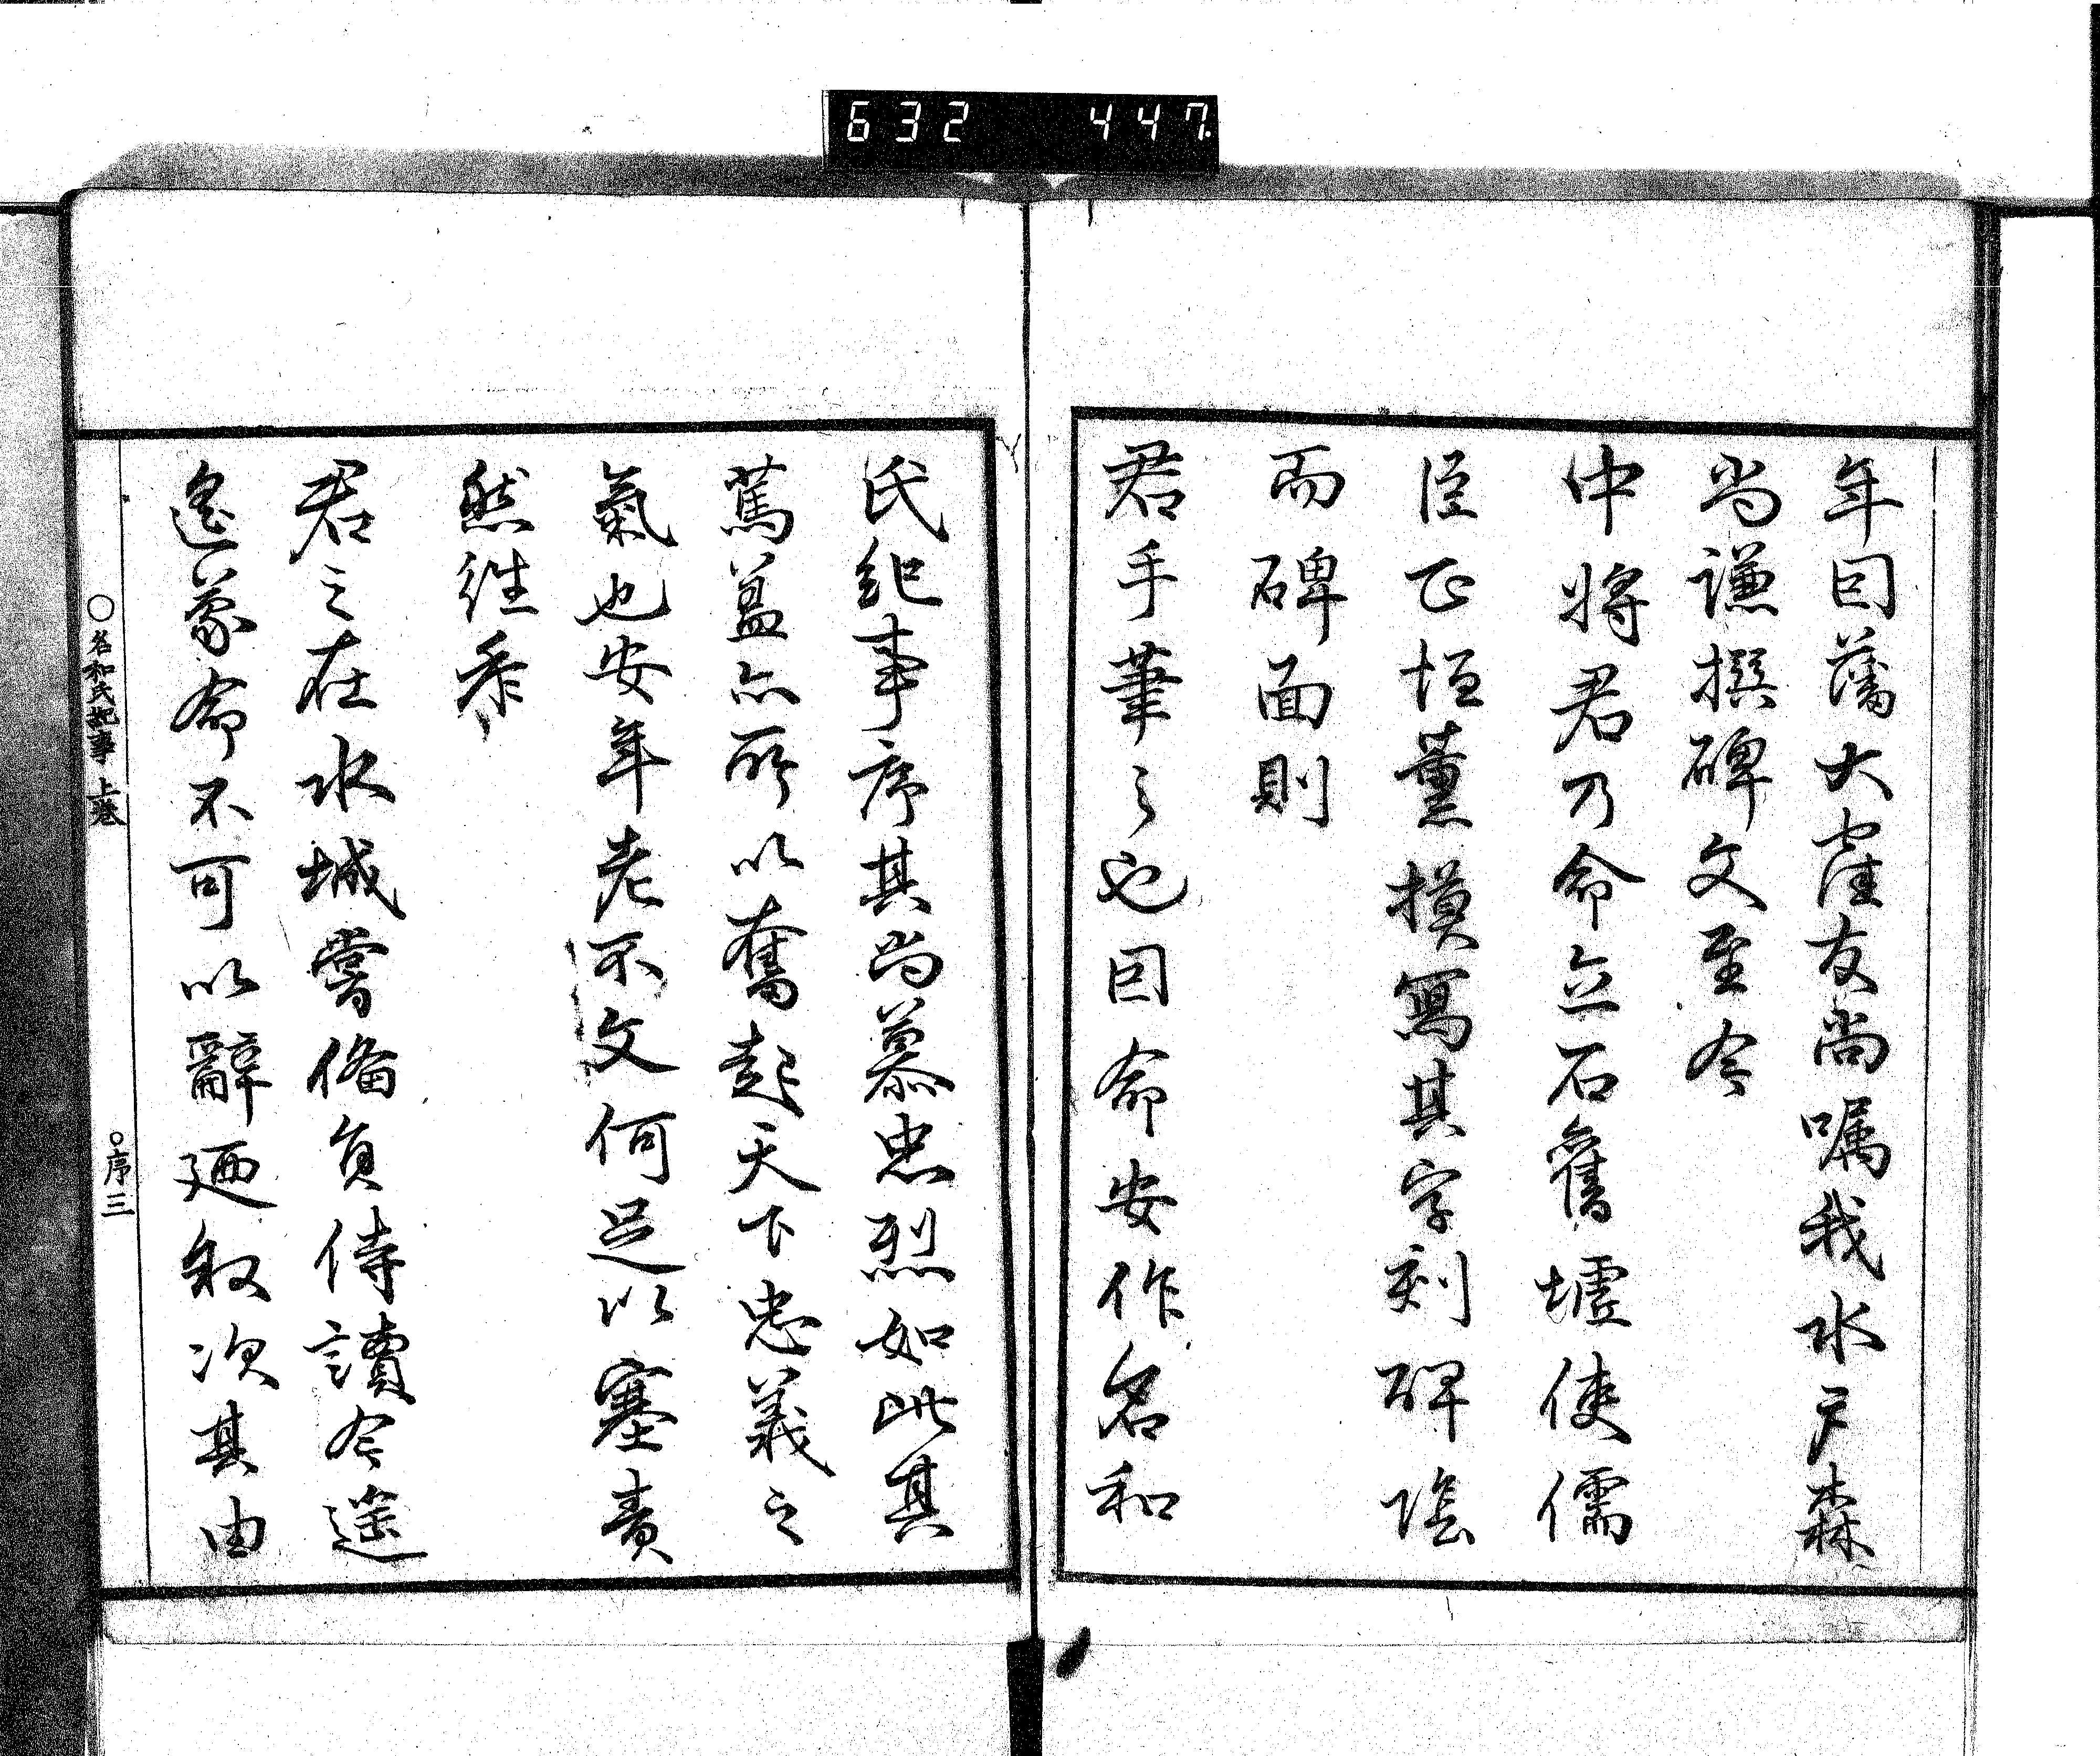 632 447
年因藩大窪友尚嘱我水户森
尚謙撰碑文至今
中将君乃命立石舊墟使儒
臣正垣薫摸寫其字刻碑陰
而碑面則
君手筆之也因命安作名和
氏紀事序其尚慕忠烈如此其
篤蓋亦所以奮起天下忠義之
氣也安年老不文何足以塞責
然往年
君之在水城嘗備員侍讀今遥
遥蒙命不可以辭廼叙次其由
○名和氏紀事 上巻 ○序三